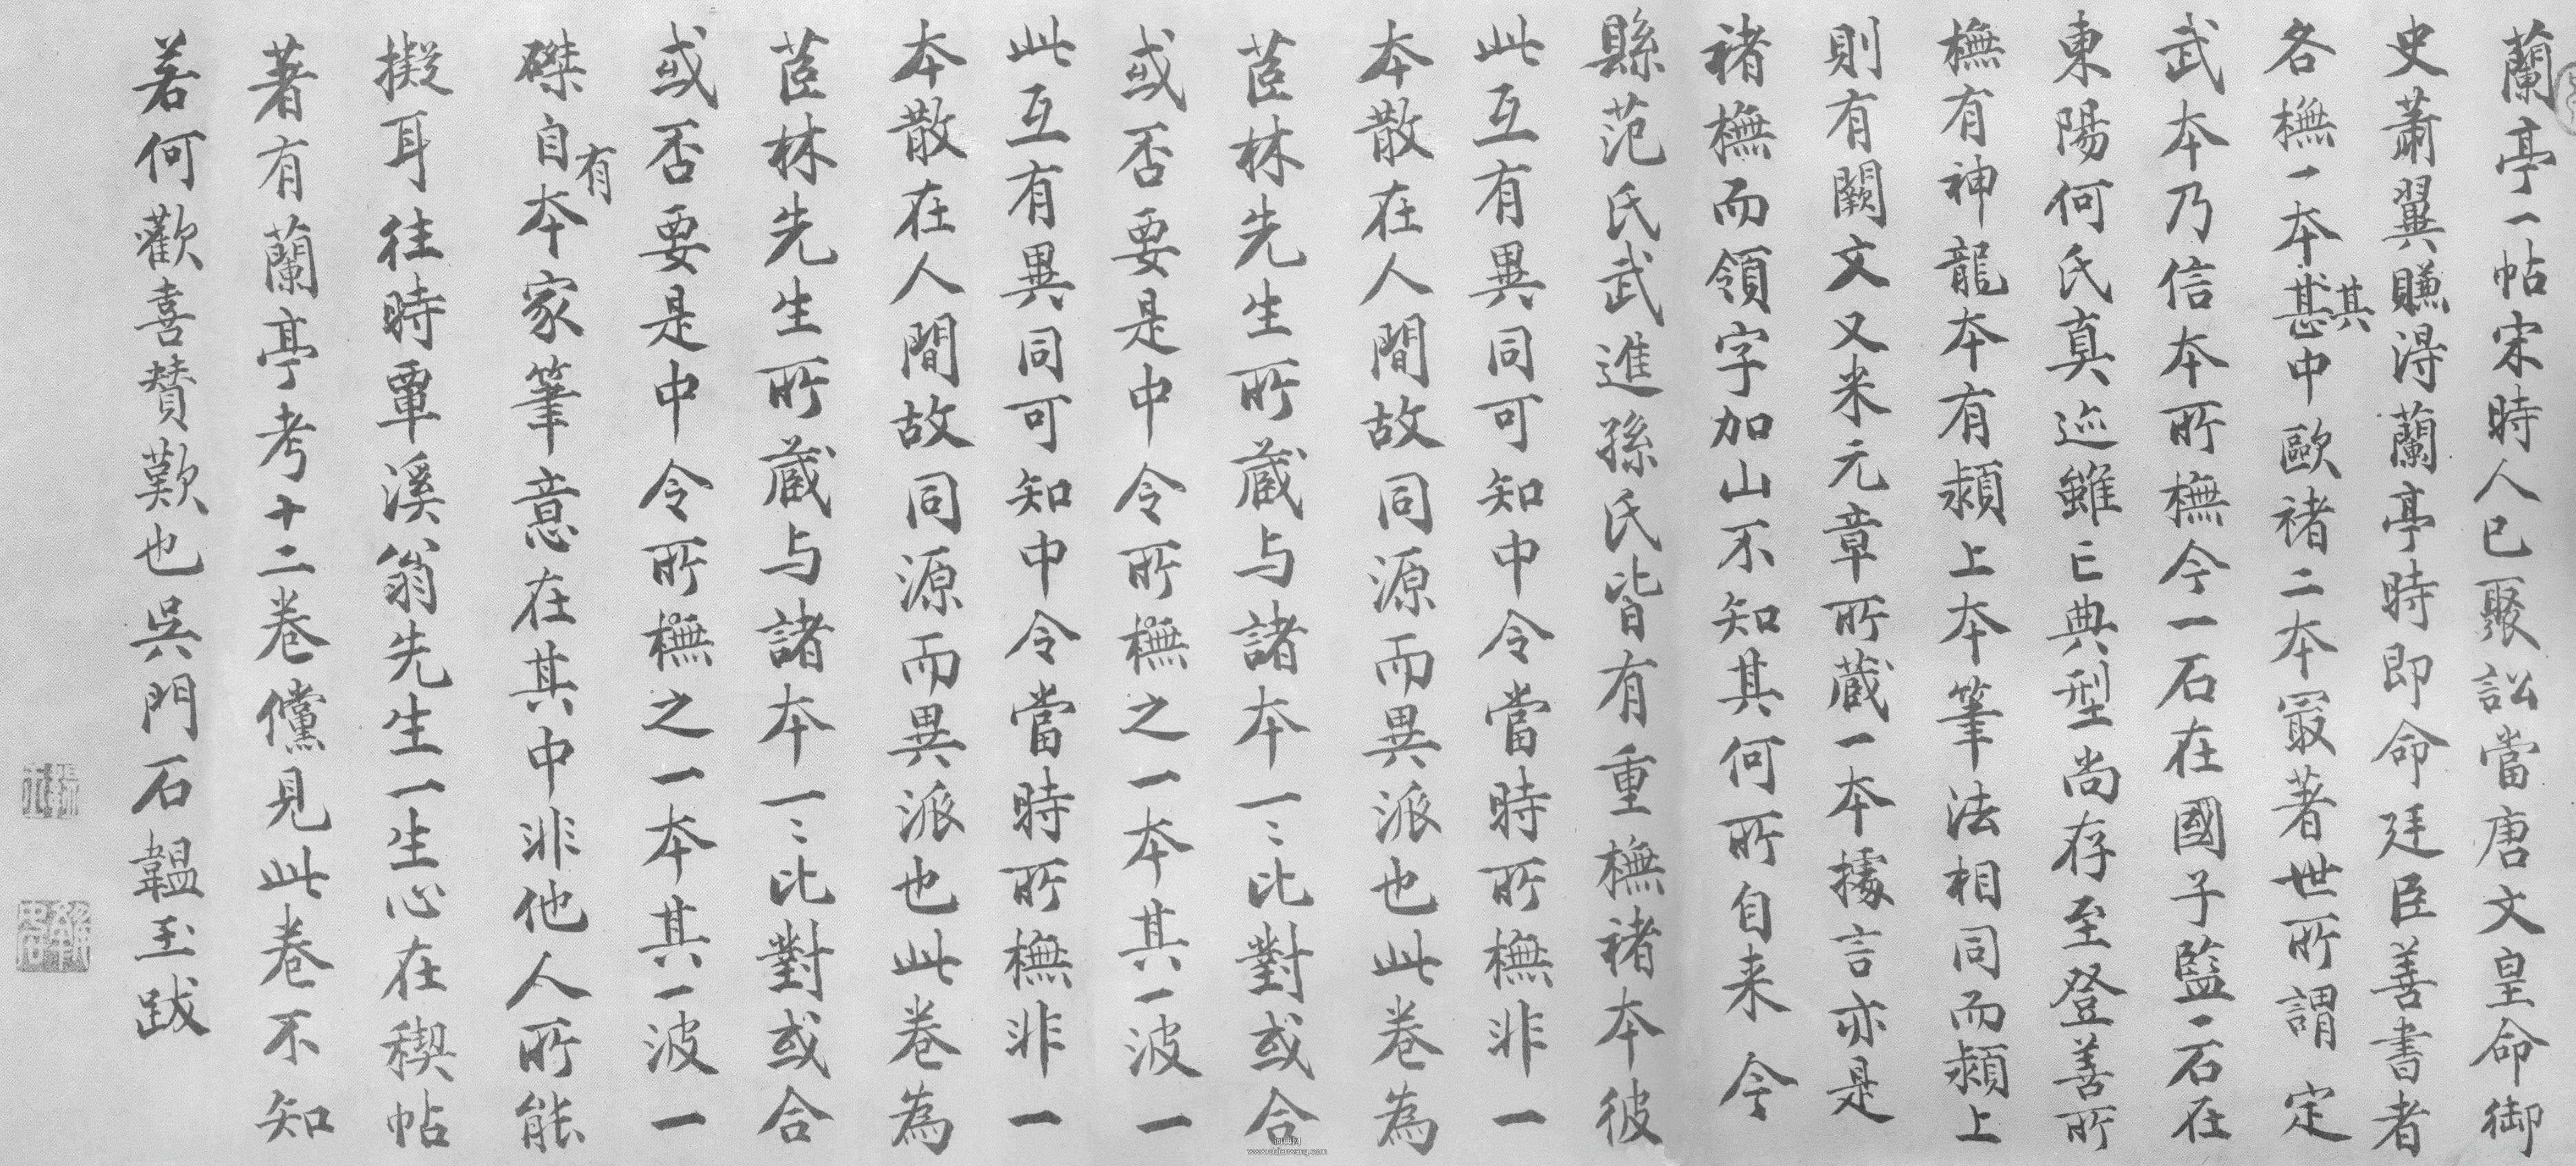 蘭亭一帖宋時人已聚訟當唐文皇命御
史蕭翼賺得蘭亭時即命廷臣善書者
各橅一本甚其中歐褚二本最著世所謂定
武本乃信本所橅今一石在國子監一石在
東陽何氏真迹雖亡典型尚存至登善所
橅有神龍本有潁上本筆法相同而潁上
則有闕文又米元章所藏一本據言亦是
褚橅而領字加山不知其何所自来今
縣范氏武進孫氏皆有重橅褚本彼
此互有異同可知中令當時所橅非一
本散在人間故同源而異派也此卷為
茝林先生所藏与諸本一〻比對或合
或否要是中令所橅之一本其一波一
此互有異同可知中令當時所橅非一
本散在人間故同源而異派也此卷為
茝林先生所藏与諸本一〻比對或合
或否要是中令所橅之一本其一波一
磔自有本家筆意在其中非他人所能
擬耳往時覃溪翁先生一生心在稧帖
著有蘭亭考十二卷儻見此卷不知
若何歡喜贊歎也吳門石韞玉跋